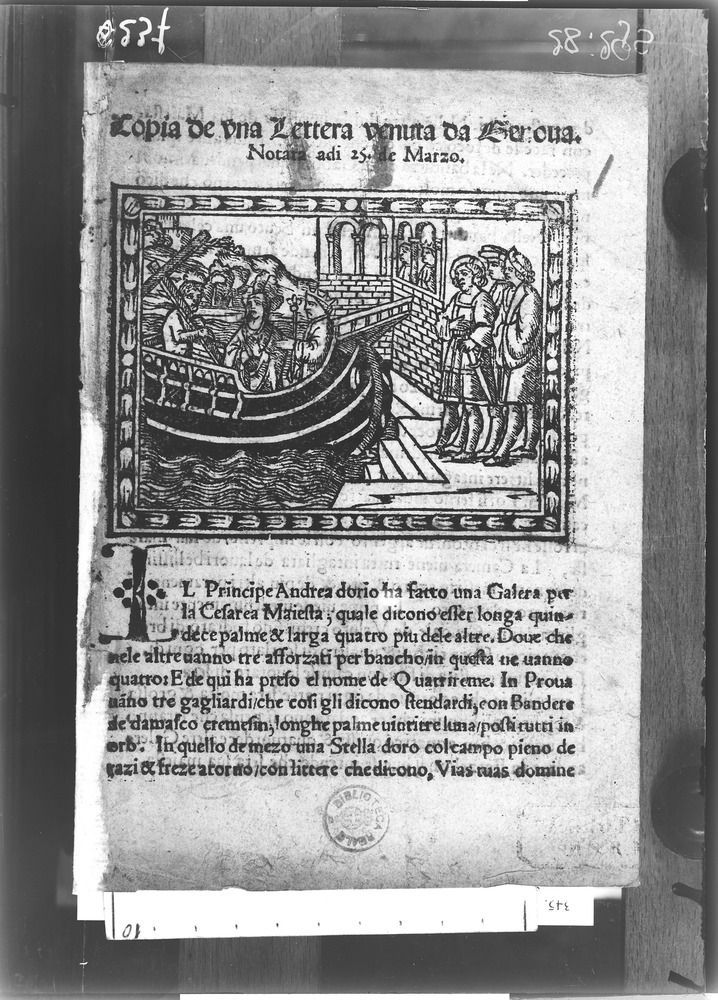 Copia de vna Lettera venuta da Genoua.
Notata adi 25. de Marzo.
IL Principe Andrea dorio ha fatto una Galera per
la Cesarea Maiesta; quale dicono esser longa quin-
dece palme & larga quatro piu dele altre. Doue che
nele altre uanno tre afforzati per bancho/in questa ne uanno
quatro: E de qui ha preso el nome de Quatrireme. In Proua
uāno tre gagliardi/che cosi gli dicono stendardi, con Bandere
de damasco cremesin; longhe palme uintitre luna/posti tutti in
orb. In quello de mezo una Stella doro col campo pieno de
razi & freze atorno/con littere che dicono, Vias tuas domine
BIBLIOTECA REALE
10
345.